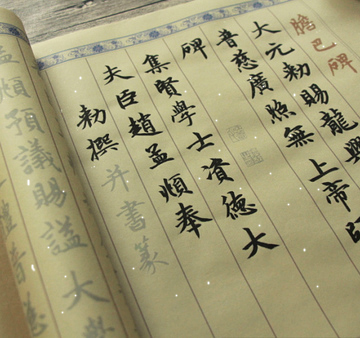 膽巴碑
大元勅賜龍興
普慈廣照無上帝師
碑
集賢學士資德大
夫臣趙孟頫奉
勅撰并書篆
孟頫預議賜謚大
普